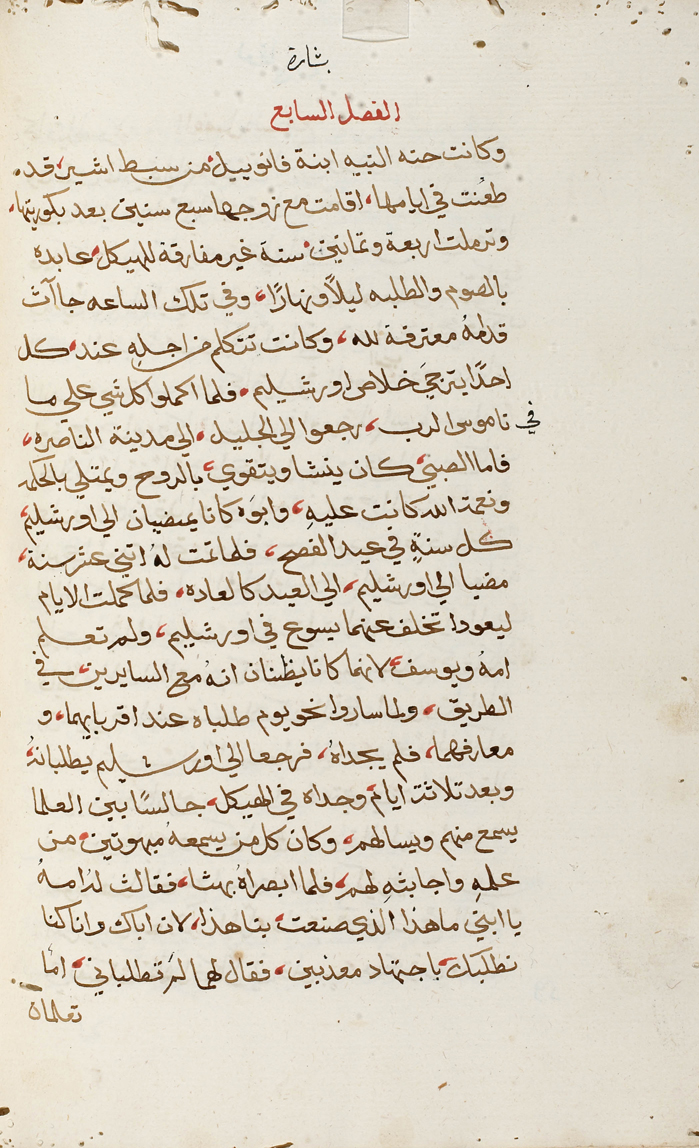 بشارة
الفصل السابع
وكانت حنه النبيه ابنة فانوييل من سبط اشير، قد
طعُنت في ايامها، اقامت مع زوجها سبع سنين بعد بكوريتها،
وترملت اربعة وثمانين سنة غير مفارقة للهيكل، عابده
بالصوم والطلبه ليلًا ونهارًا، وفي تلك الساعه جاآت
قدامهُ معترفة لله، وكانت تتكلم من اجلهِ عند كل
احدًا يترجيَ خلاص اورشليم، فلما اكملوا كل شي علي ما
في ناموس الرب، رجعوا الي الجليل، الي مدينة الناصره،
فاما الصبي، كان ينشا ويتقوي، بالروح ويمتلي بالحكمه
ونعمة الله كانت عليهِ، وابوَه كانا يمضيان الي اورشليم،
كل سنةٍ في عيد الفصح، فلما تمت لهُ اثني عشر سنة،
مضيا الي اورشليم، الي العيد كالعادة، فلما كملت الايام
ليعودا تخلف عنهما يسوع في اورشليم، ولم تعلم
امهُ ويوسف، لانهما كانا يظنان انهُ مع السايرين، في
الطريق، ولما ساروا نحو يوم طلباه عند اقربايهما، و
معارفهما، فلم يجداهُ، فرجعا الي اورشليم يطلبانهُ
وبعد ثلاثة ايام، وجداه في الهيكل، جالسًا بين العلما
يسمع منهم ويسالهم، وكان كل من يسمعهُ مبهوتين، من
علمهِ واجابتهِ لهم، فلما ابصراهُ بهتا، فقالت لهُ امهُ
يا ابني ما هذا الذي صنعت، بنا هذا، لان اباك وانا كنا
نطلبك، باجتهاد معذبين، فقال لهما لمَ تطلباني، اما
تعلمان